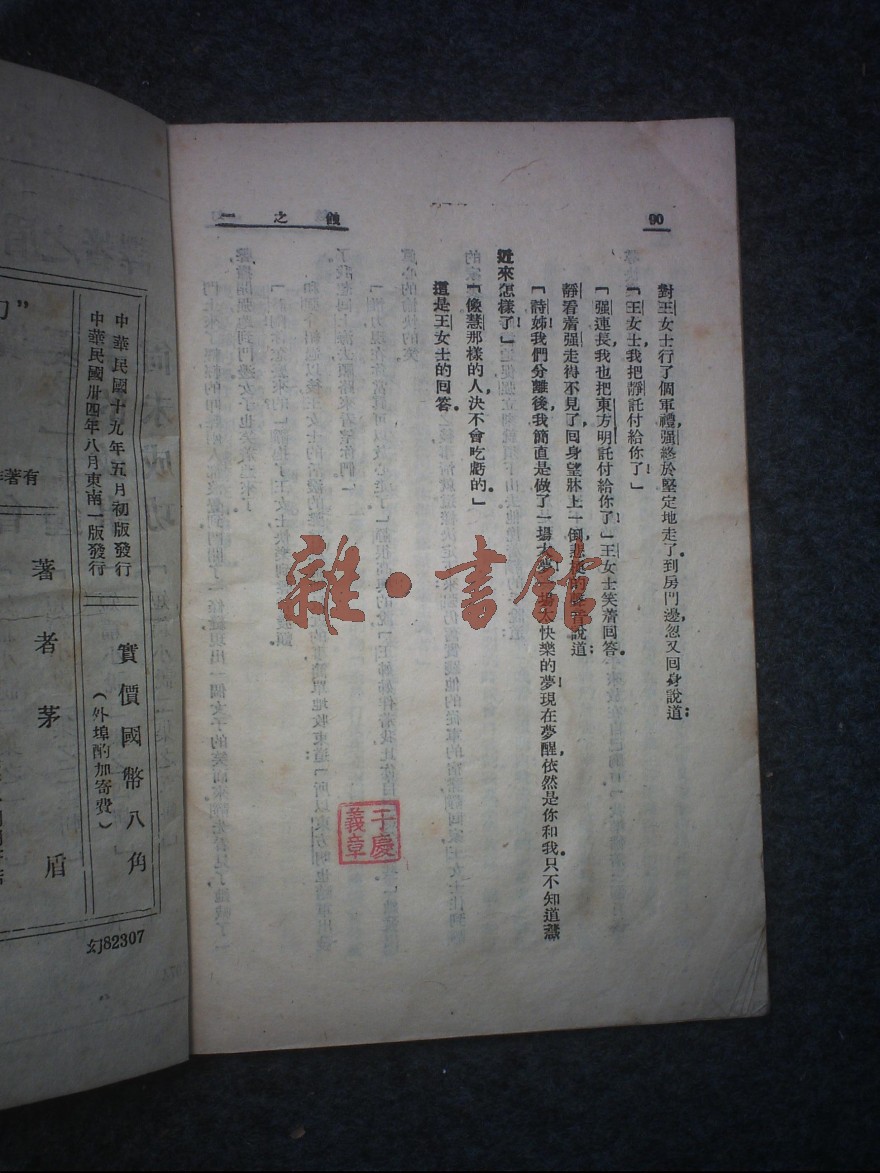 90
蝕之一
對王女士行了個軍禮，强終於堅定地走了。到房門邊，忽又回身說道：
「王女士！我把靜託付給你了！」
「强連長！我也把東方明託付給你了！」王女士笑着回答。
靜看着强走得不見了，回身望牀上一倒，悲梗的聲音說道：
「詩姊！我們分離後，我簡直是做了一場大夢！一場太快樂的夢！現在夢醒，依然是你和我。只不知道慧
近來怎樣了！」
「像慧那樣的人，決不會吃虧的。」
這是王女士的回答。
于慶
義章
雜·書館
中華民國十九年五月初版發行
中華民國卅四年八月東南一版發行
實價國幣八角
（外埠酌加寄費）
著者茅盾
有著
幻82307